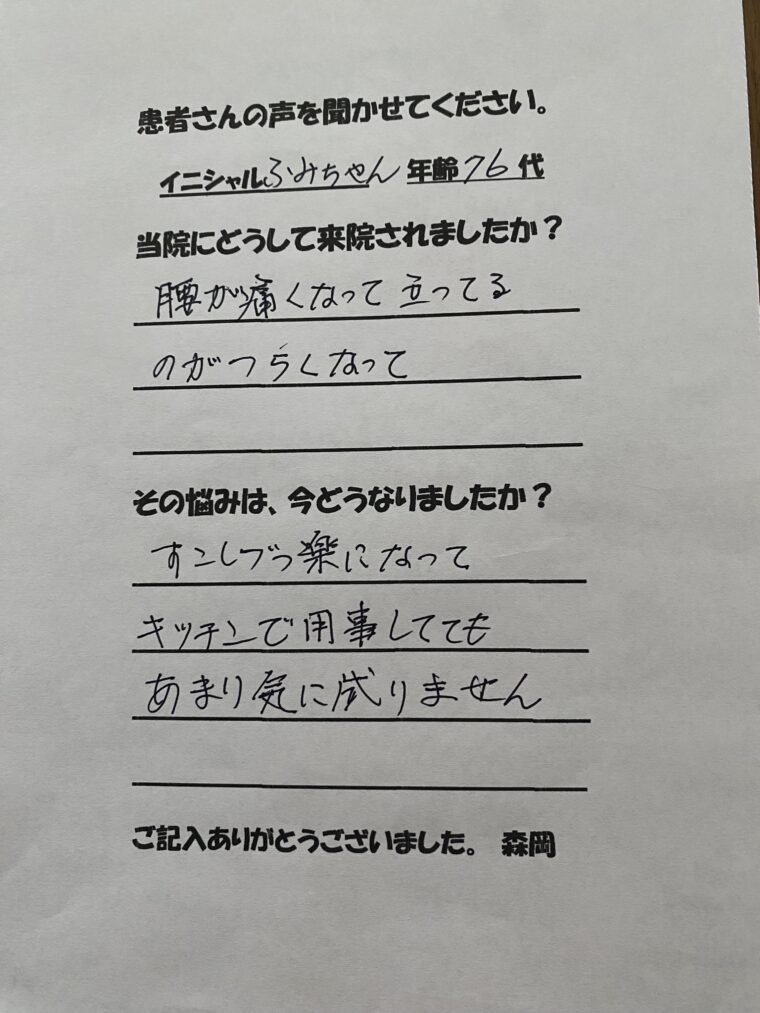 患者さんの声を聞かせてください。
イニシャルふみちゃん 年齢76代
当院にどうして来院されましたか？
腰が痛くなって 立ってる
のがつらくなって
その悩みは、今どうなりましたか？
すこしづつ楽になって
キッチンで用事してても
あまり気に成りません
ご記入ありがとうございました。 森岡